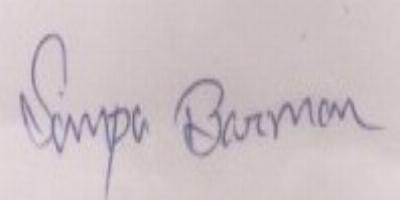 Simpa Barman